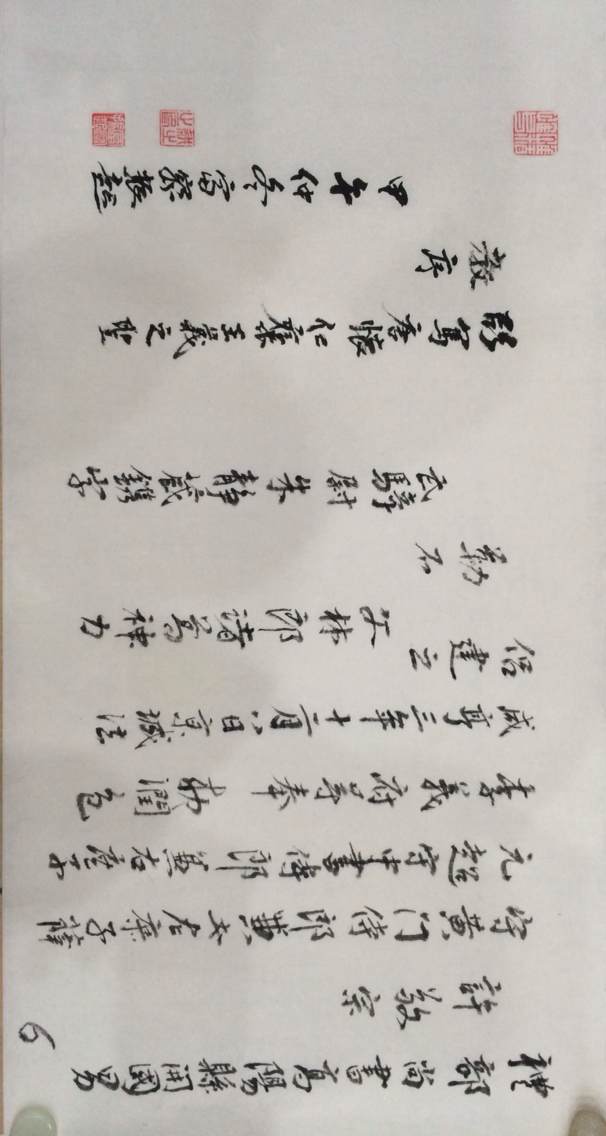 禮部尚書高陽縣開國男
許敬宗
守黃門侍郎兼左庶子薛
元超守中書侍郎兼右庶子
李義府等奉敕潤色
咸亨三年十二月八日京城法
侶建立
文林郎諸葛神力
勒石
武騎尉朱靜藏鐫字
寫唐懷仁集王羲之聖
教序
甲午仲冬富察振
6